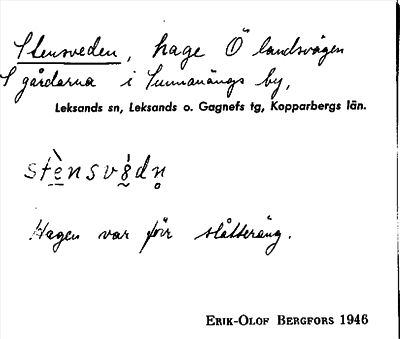 Stensveden, hage Ö landsvägen
S gårdarna i Sunnanängs by,
Leksands sn, Leksands o. Gagnefs tg, Kopparbergs län.
stènsvèdn̥
Hagen var förr slåtteräng.
ERIK-OLOF BERGFORS 1946